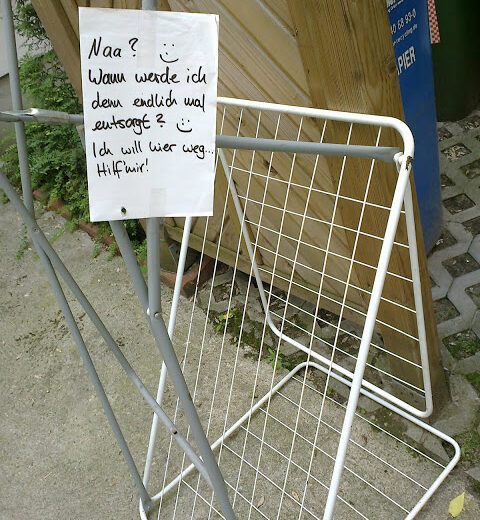 Naa? :)
Wann werde ich
denn endlich mal
entsorgt? :)
Ich will hier weg...
Hilf mir!
0 68 99-0
PIER